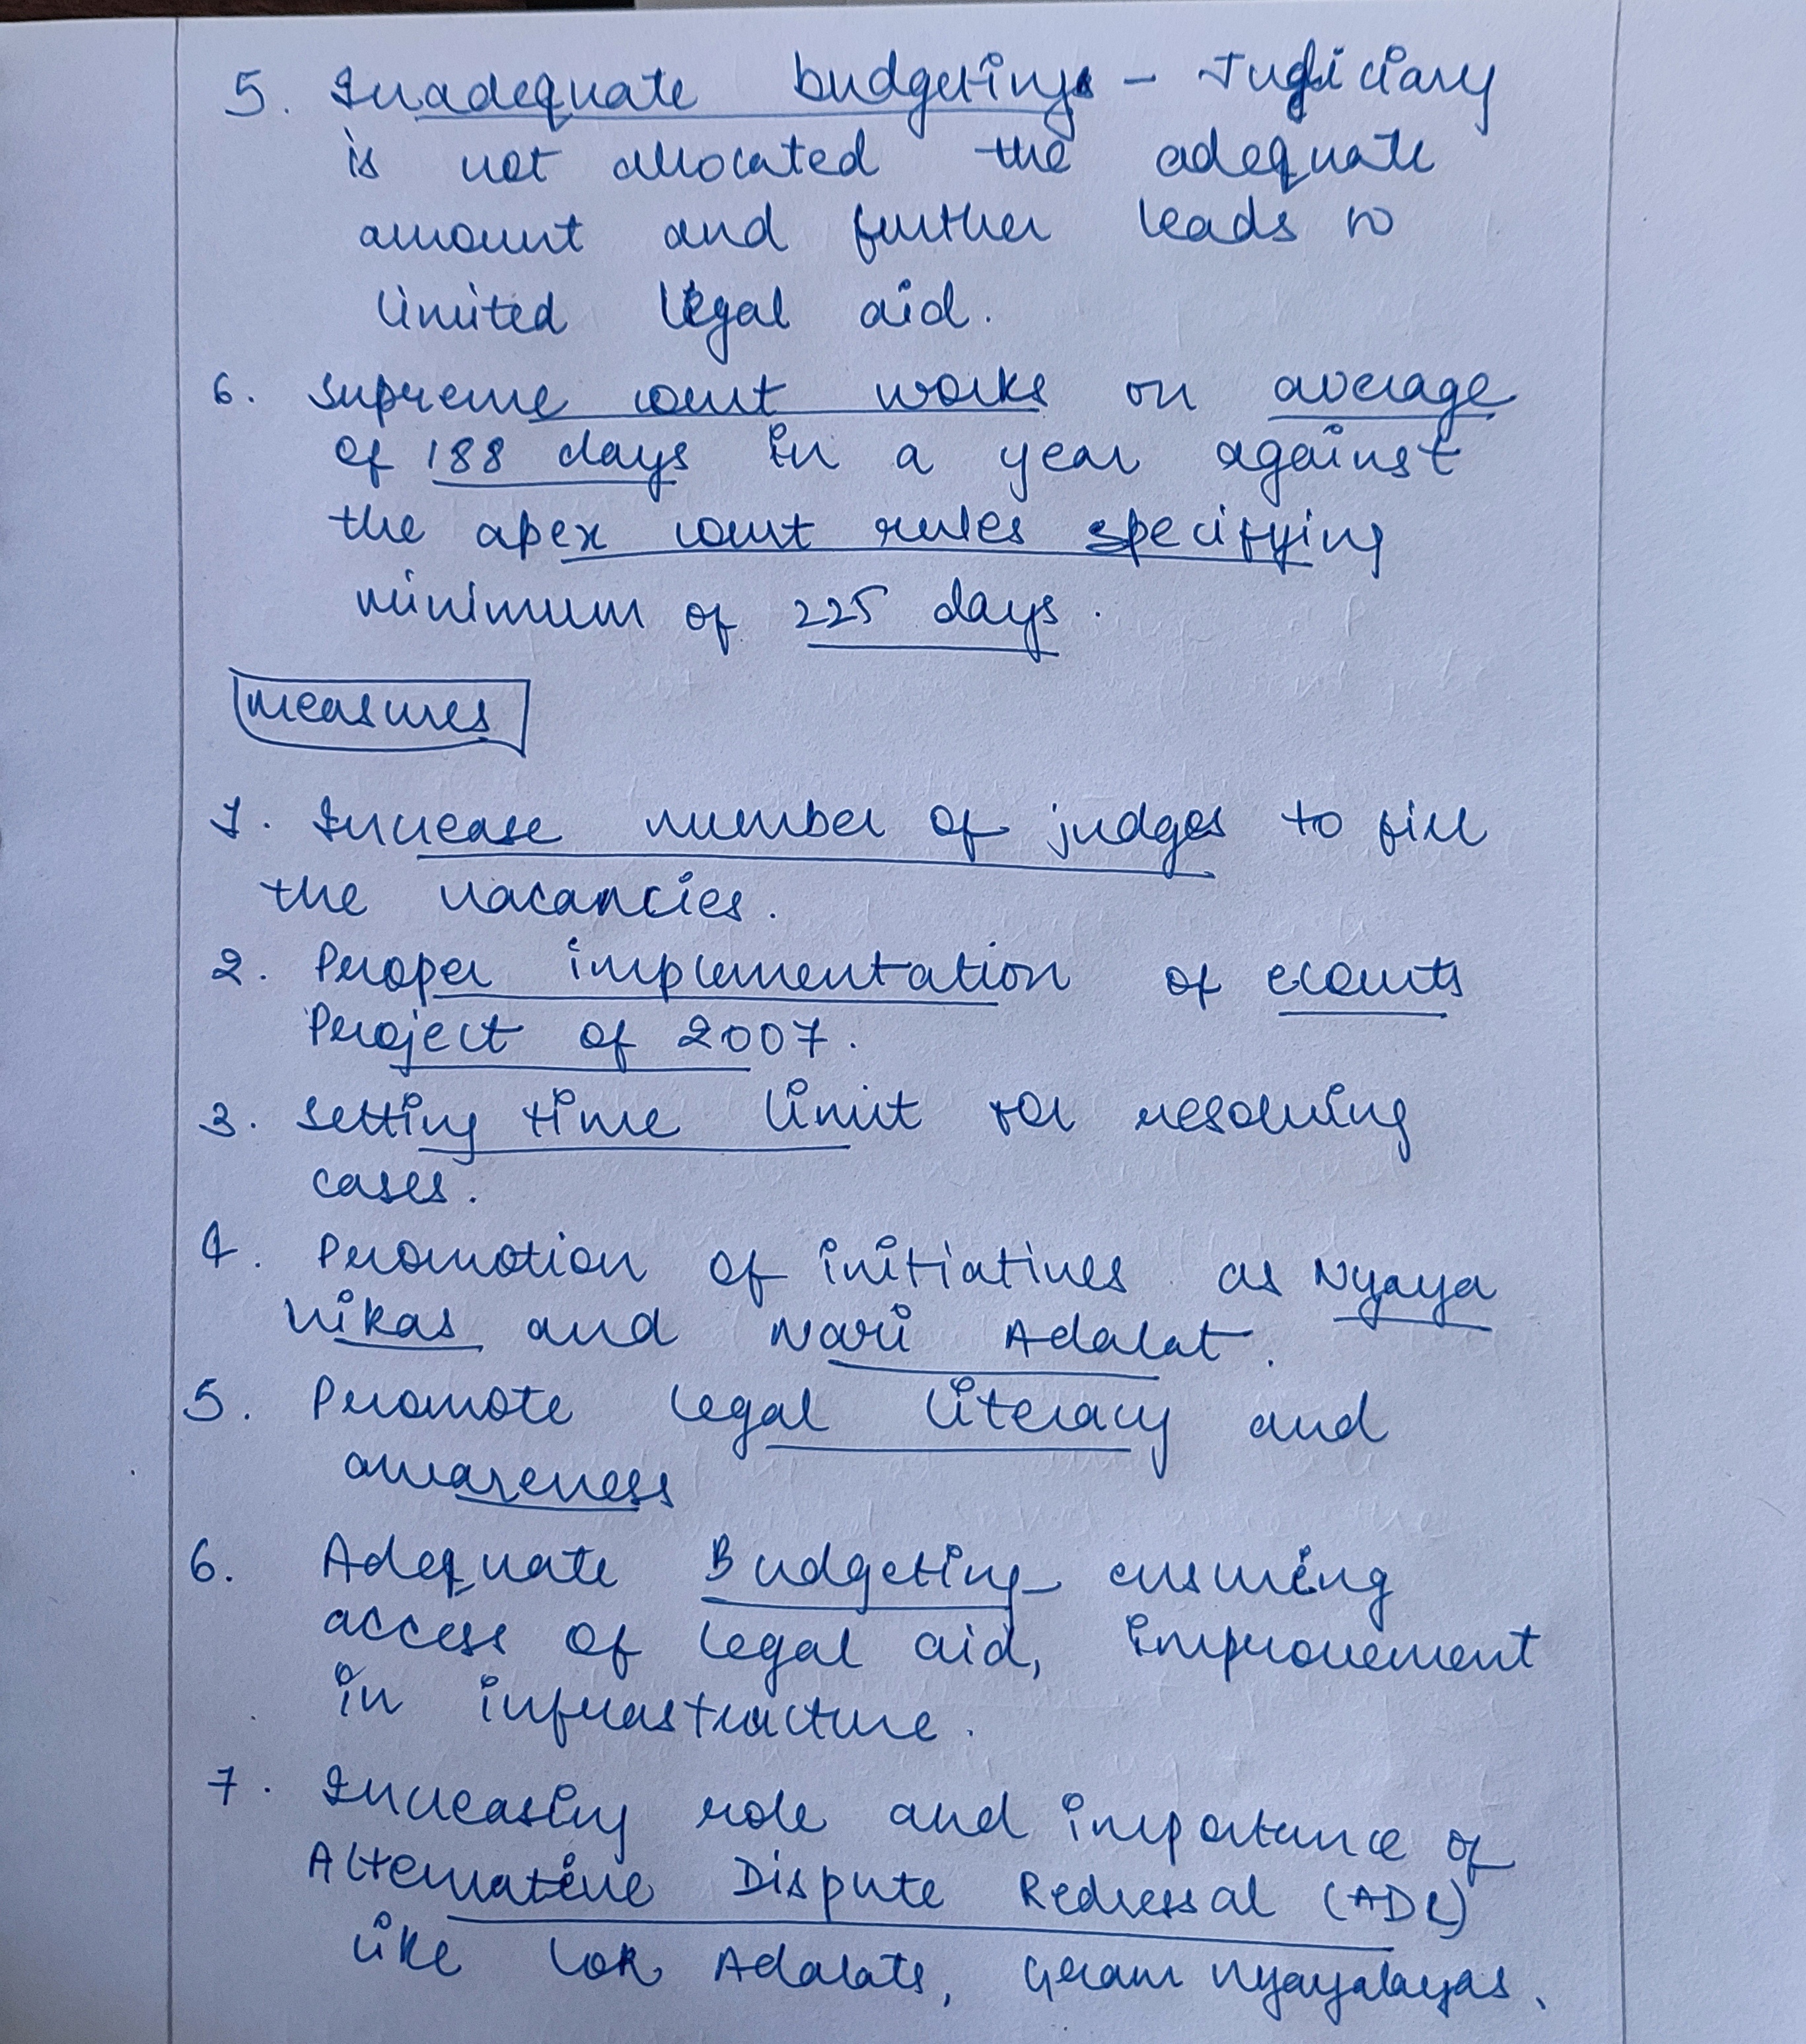 5. Inadequate budgeting - Judiciary
is not allocated the adequate
amount and further leads to
limited legal aid.
6. Supreme court works on average
of 188 days in a year against
the apex court rules specifying
minimum of 225 days.
Measures
1. Increase number of judges to fill
the vacancies.
2. Proper implementation of ecourts
Project of 2007.
3. Setting time limit for resolving
cases.
4. Promotion of initiatives as Nyaya
Vikas and Nari Adalat.
5. Promote legal literacy and
awareness
6. Adequate Budgeting ensuring
access of legal aid, improvement
in infrastructure.
7. Increasing role and importance of
Alternative Dispute Redressal (ADR)
like Lok Adalats, Gram Nyayalayas.